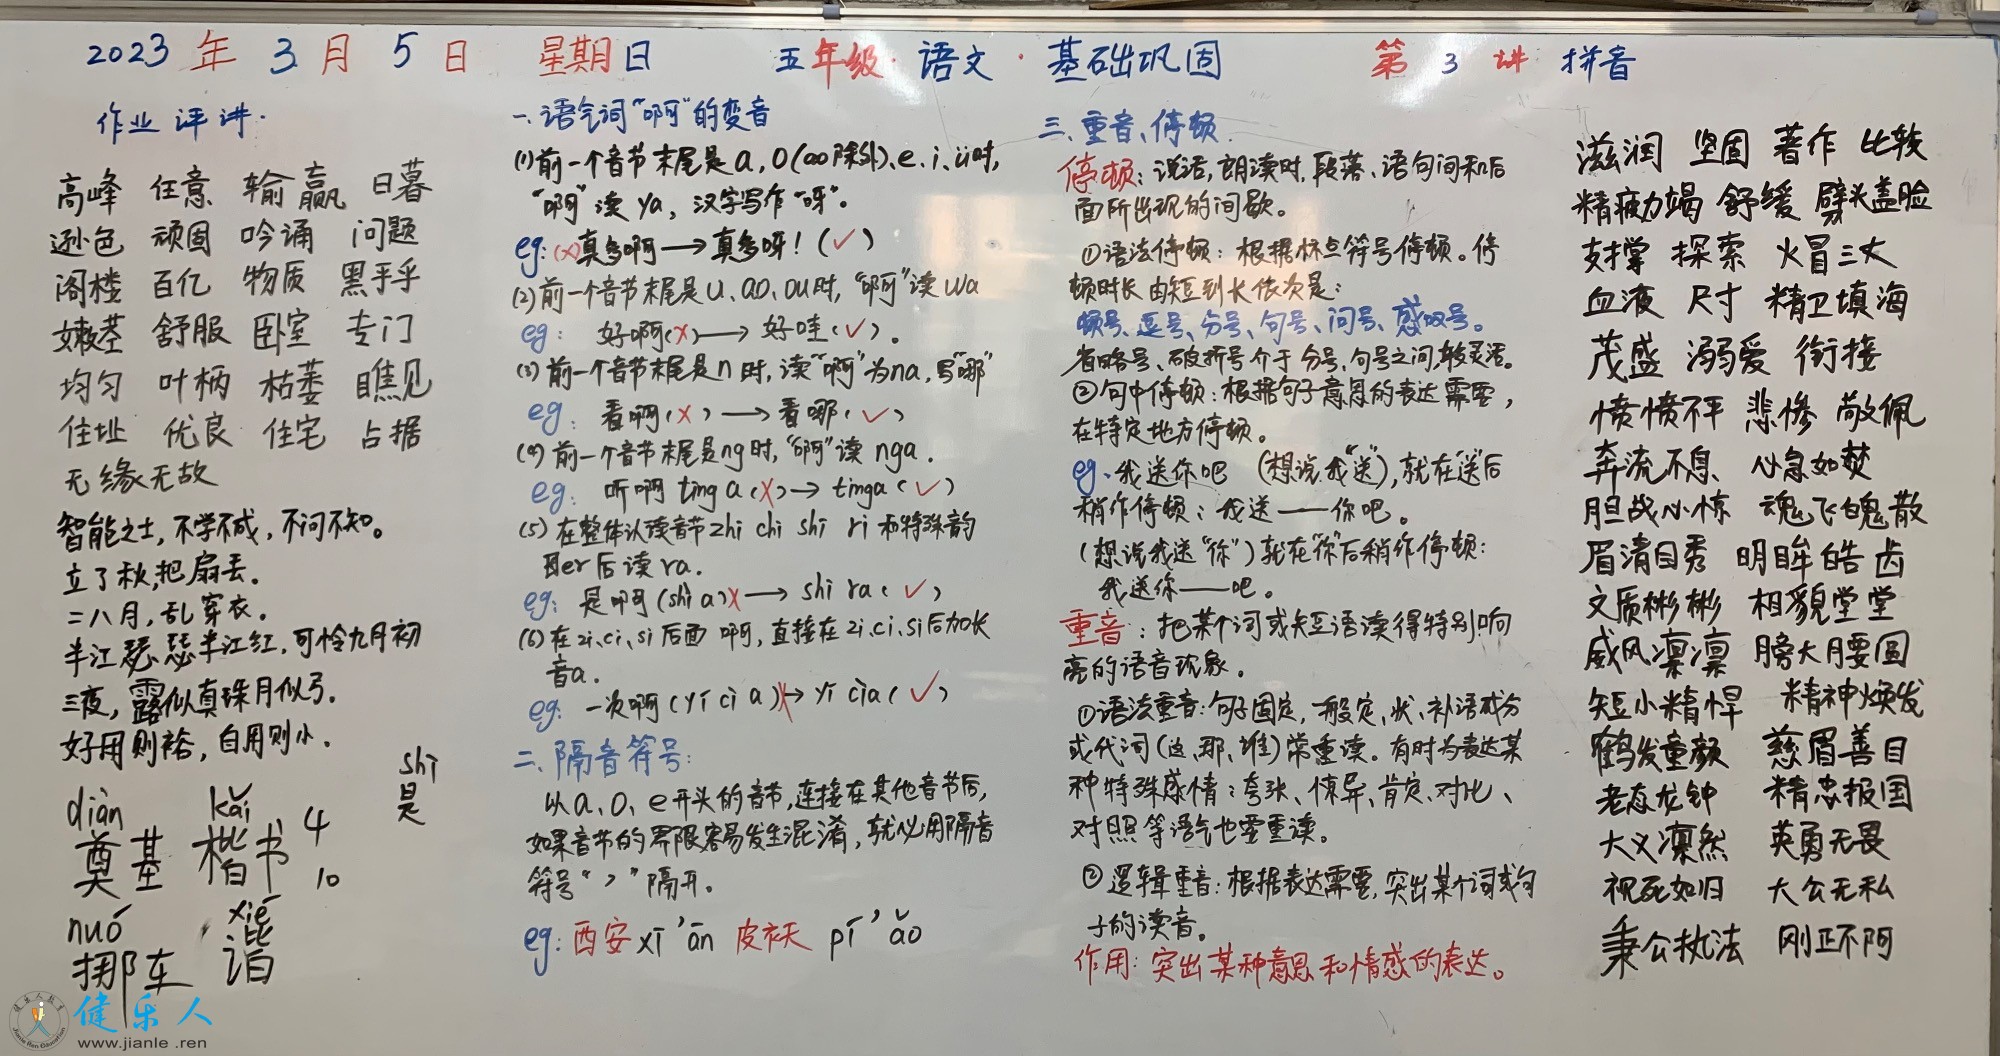 2023年3月5日 星期日 五年级·语文·基础巩固 第3讲 拼音
作业评讲.
高峰 任意 输赢 日暮
逊色 顽固 吟诵 问题
阁楼 百亿 物质 黑乎乎
嫩茎 舒服 卧室 专门
均匀 叶柄 枯萎 瞧见
住址 优良 住宅 占据
无缘无故
智能之士,不学不成,不问不知。
立了秋,把扇丢。
二八月,乱穿衣。
半江瑟瑟半江红,可怜九月初
三夜,露似真珠月似弓.
好用则裕,自用则小.
shì
是
diàn kǎi
奠基 楷书 4
10
nuó xié
挪车 谐
一、语气词“啊”的变音
(1)前一个音节末尾是a,o(ao除外)、e、i、ü时,
“啊”读ya,汉字写作“呀”。
eg:(×)真多啊→真多呀!(✓)
(2)前一个音节末尾是u、ao、ou时,“啊”读wa
eg: 好啊(×)→好哇(✓)。
(3)前一个音节末尾是n时,读“啊”为na,写“哪”
eg: 看啊(×)→看哪(✓)
(4)前一个音节末尾是ng时,“啊”读nga.
eg: 听啊 ting a(×)→tinga(✓)
(5)在整体认读音节zhi chi shi ri和特殊韵
母er后读ra.
eg: 是啊(shì a)×→shì ra(✓)
(6)在zi、ci、si后面 啊,直接在zi、ci、si后加长
音a.
eg: 一次啊(yí cì a)×→yí cìa(✓)
二、隔音符号:
以a、o、e开头的音节,连接在其他音节后,
如果音节的界限容易发生混淆,就必用隔音
符号“’”隔开。
eg:西安 xī’ān 皮袄 pí’ǎo
三、重音、停顿
停顿:说话,朗读时,段落、语句间和后
面所出现的间歇。
①语法停顿:根据标点符号停顿。停
顿时长由短到长依次是:
顿号、逗号、分号、句号、问号、感叹号。
省略号、破折号介于分号、句号之间,较灵活。
②句中停顿:根据句子意思的表达需要,
在特定地方停顿。
eg、我送你吧 (想说我“送”),就在“送”后
稍作停顿:我送——你吧。
(想说我送“你”)就在“你”后稍作停顿:
我送你——吧。
重音:把某个词或短语读得特别响
亮的语音现象。
①语法重音:句子固定,一般定、状、补语或分
或代词(这、那、谁)常重读。有时为表达某
种特殊感情:夸张、惊异、肯定、对比、
对照等语气也要重读。
②逻辑重音:根据表达需要,突出某个词或句
子的读音。
作用:突出某种意思和情感的表达。
滋润 坚固 著作 比较
精疲力竭 舒缓 劈头盖脸
支撑 探索 火冒三丈
血液 尺寸 精卫填海
茂盛 溺爱 衔接
愤愤不平 悲惨 敬佩
奔流不息 心急如焚
胆战心惊 魂飞魄散
眉清目秀 明眸皓齿
文质彬彬 相貌堂堂
威风凛凛 膀大腰圆
短小精悍 精神焕发
鹤发童颜 慈眉善目
老态龙钟 精忠报国
大义凛然 英勇无畏
视死如归 大公无私
秉公执法 刚正不阿
健乐人
www.jianle.ren